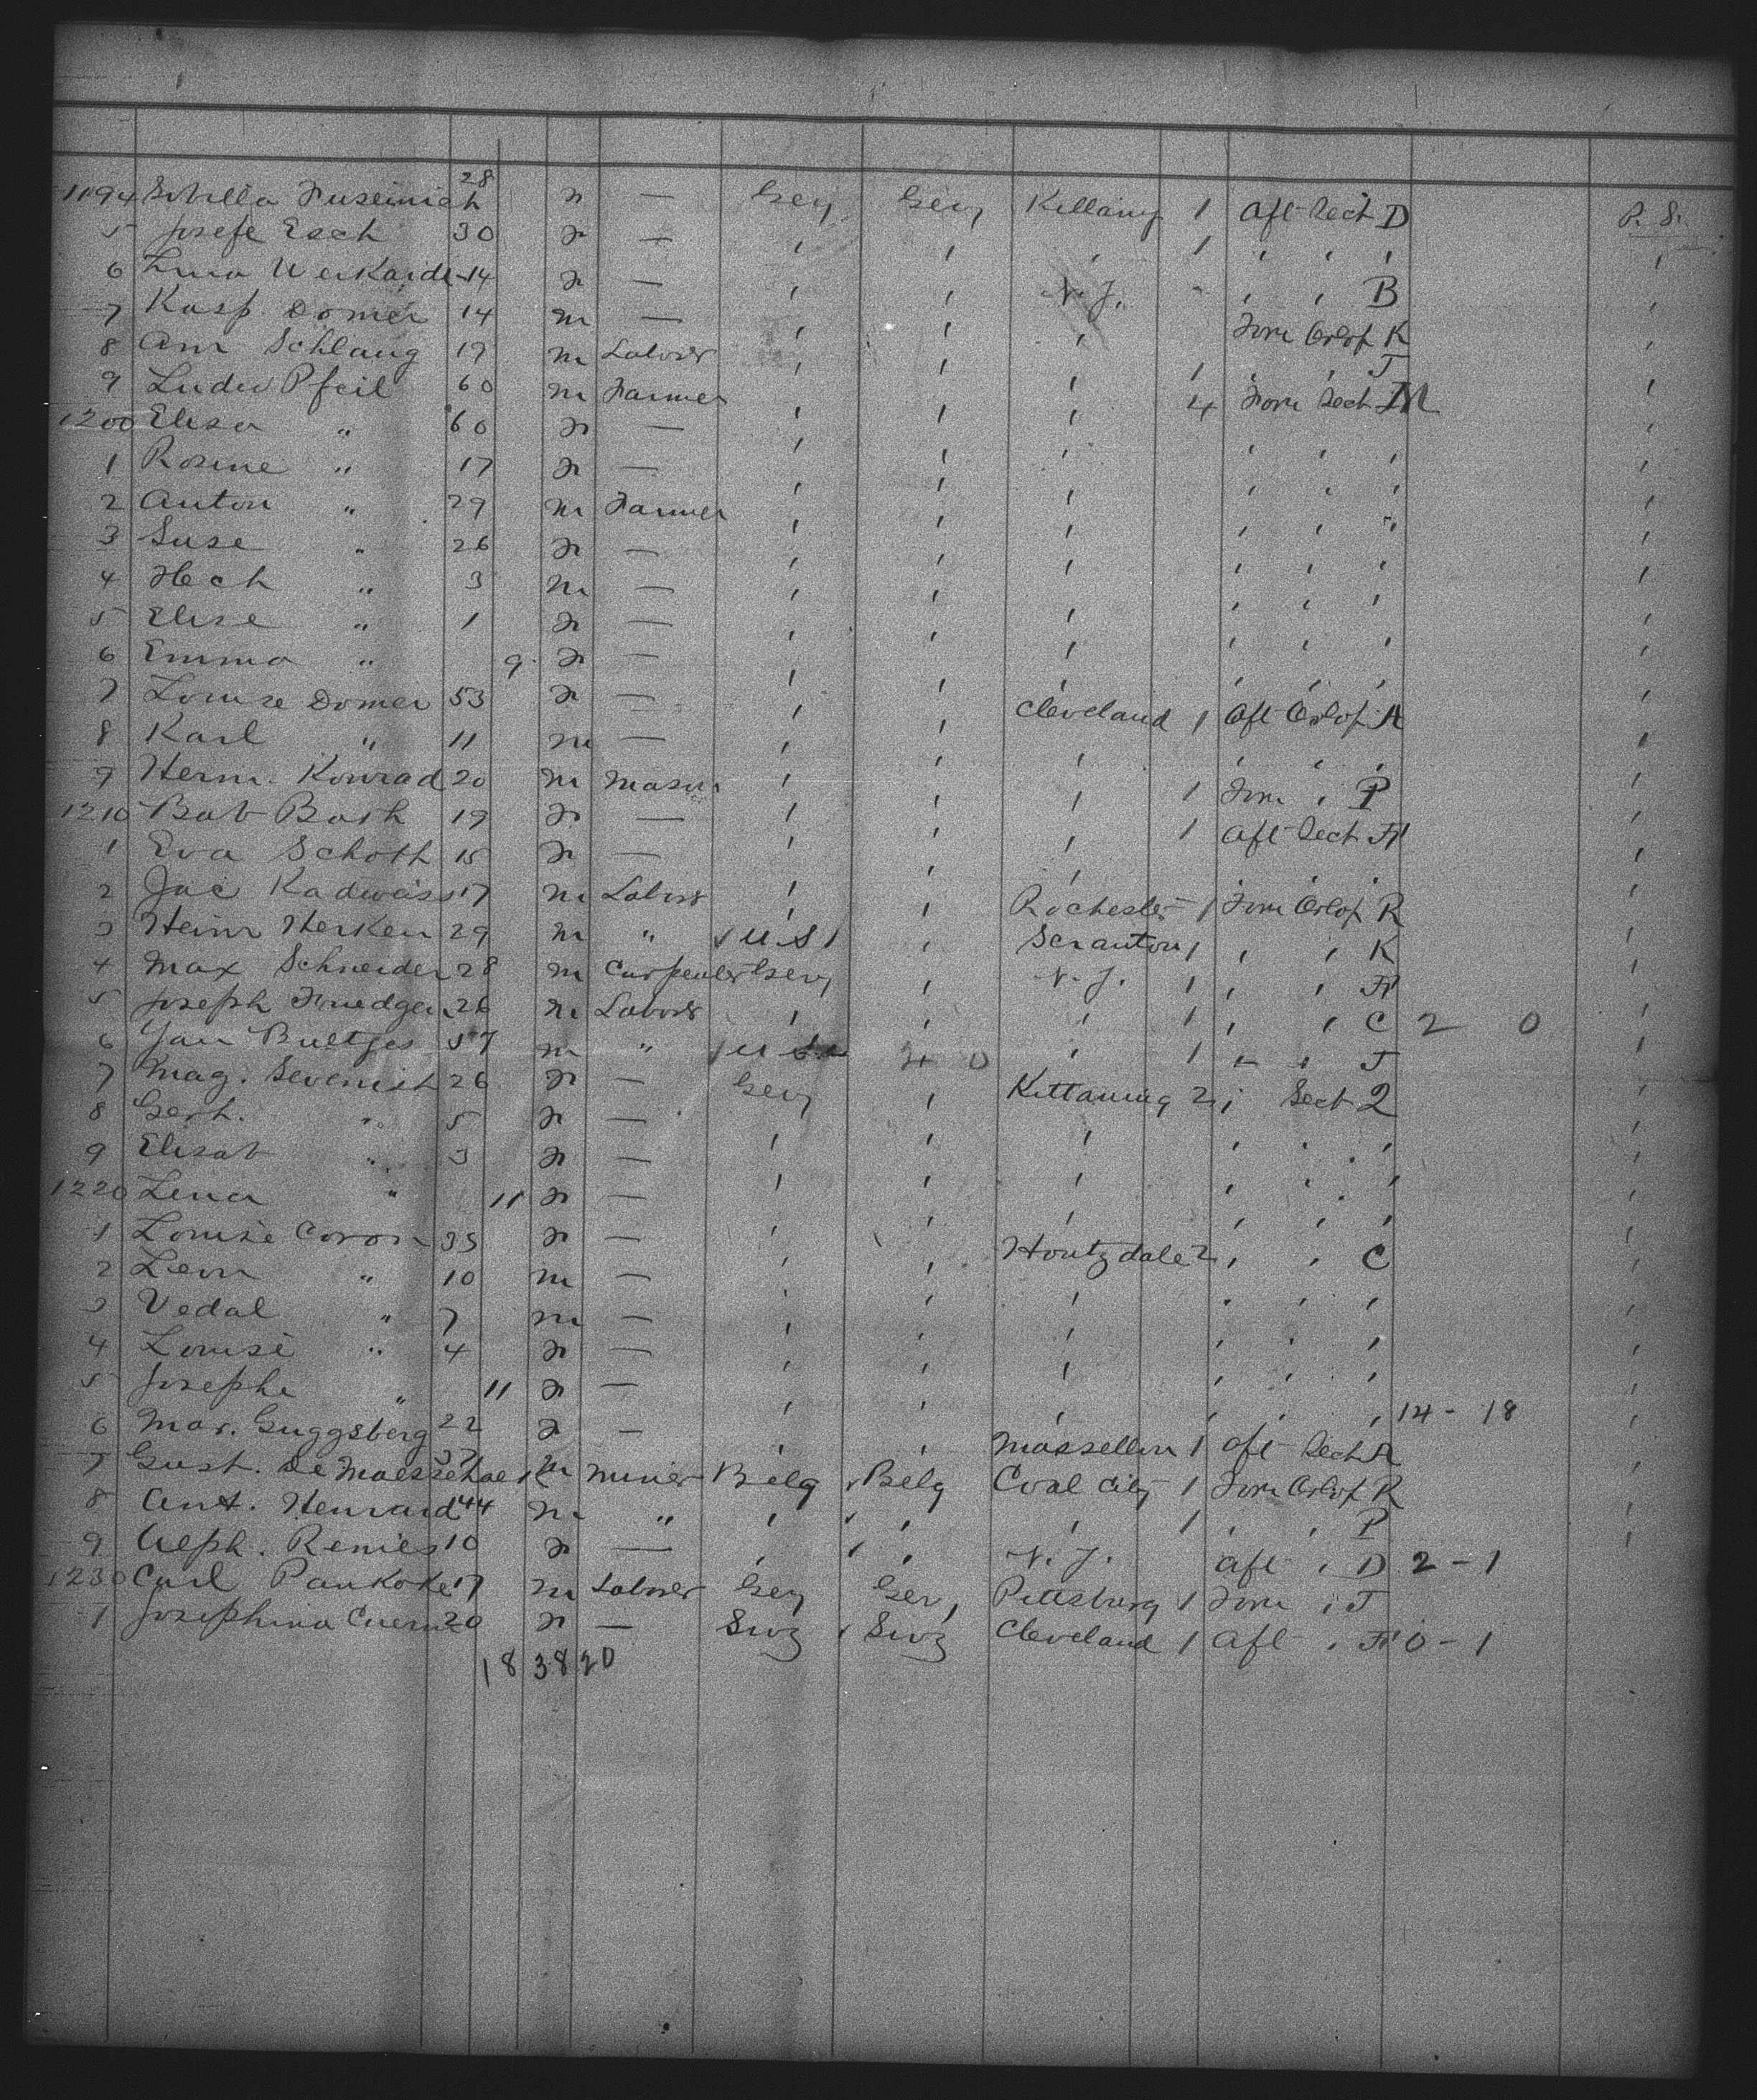 1194 28 h n — Gery Gery Killany 1 Aft Sect D P. S.
5 Josefe Esch 30 n — , , , 1 , , , ,
6 14 n — , , N. J. - , , B ,
7 Kasp. Domer 14 m — , , , Forw Orlop K ,
8 Am Schlaug 19 m Labores , , , 1 , , J ,
9 Ludw Pfeil 60 m Farmer , , , 4 Forw Sect M ,
1200 Elisa " 60 n — , , , , , , ,
1 Rosine " 17 n — , , , , , , ,
2 Anton " 29 m Farmer , , , , , " ,
3 Suse " 26 n — , , , , , , ,
4 Hech " 3 m — , , , , , , ,
5 Elise " 1 n — , , , , , , ,
6 Emma " 9 n — , , , , , , ,
7 Louise Domer 53 n — , , Cleveland 1 Aft Orlop A ,
8 Karl " 11 m — , , , , , , ,
9 Herm. Konrad 20 m Mason , , , 1 Forw , P ,
1210 Bab Bosh 19 n — , , , 1 Aft Sect H ,
1 Eva Schoth 15 n — , , , , , , ,
2 Jac Kadwass 17 m Labors , , Rochester 1 Forw Orlop R ,
3 Heinr Herken 29 m " U S , Scranton 1 , , K ,
4 Max Schneider 28 m Carpenter Gery , N. J. 1 , , H ,
5 Joseph 26 m Labors , , , 1 , , C 2 0 ,
6 Jan Bultjes 57 m " U S H 0 , 1 , , J ,
7 Mag. Sevenich 26 n — Gery , Kittaning 2 , Sect Q ,
8 Gert. " 5 n — , , , , , , ,
9 Elisab " 3 n — , , , , , , ,
1220 Lena " 11 n — , , , , , , ,
1 Louise Coron 35 n — , , Houtzdale 2 , , C ,
2 Leon " 10 m — , , , , , , ,
3 Vedal " 7 m — , , , , , , ,
4 Louise " 4 n — , , , , , , ,
5 Josephe " 11 n — , , , , , , 14 - 18 ,
6 Mar. Guggsberg 22 n — , , Massellon 1 Aft Sect A ,
7 Gust. De 37 m Miner Belg Belg Coal City 1 Forw Orlop R ,
8 Ant. Henrard 44 m " , , , 1 , , P ,
9 Alph. Renies 10 n — , , N. J. Aft , D 2 - 1
1230 Carl Pankoke 17 m Labores Gery Ger, Pittsburg 1 Forw , J
1 Josephina 20 n — Swz Swz Cleveland 1 Aft , H 0 - 1
18 38 20